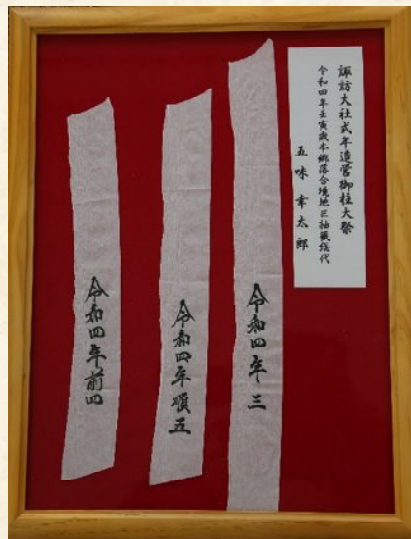 諏訪大社式年造営御柱大祭
令和四年壬寅歳本郷落合境地区抽籤総代
五味幸太郎
令和四年三
令和四年順五
令和四年前四